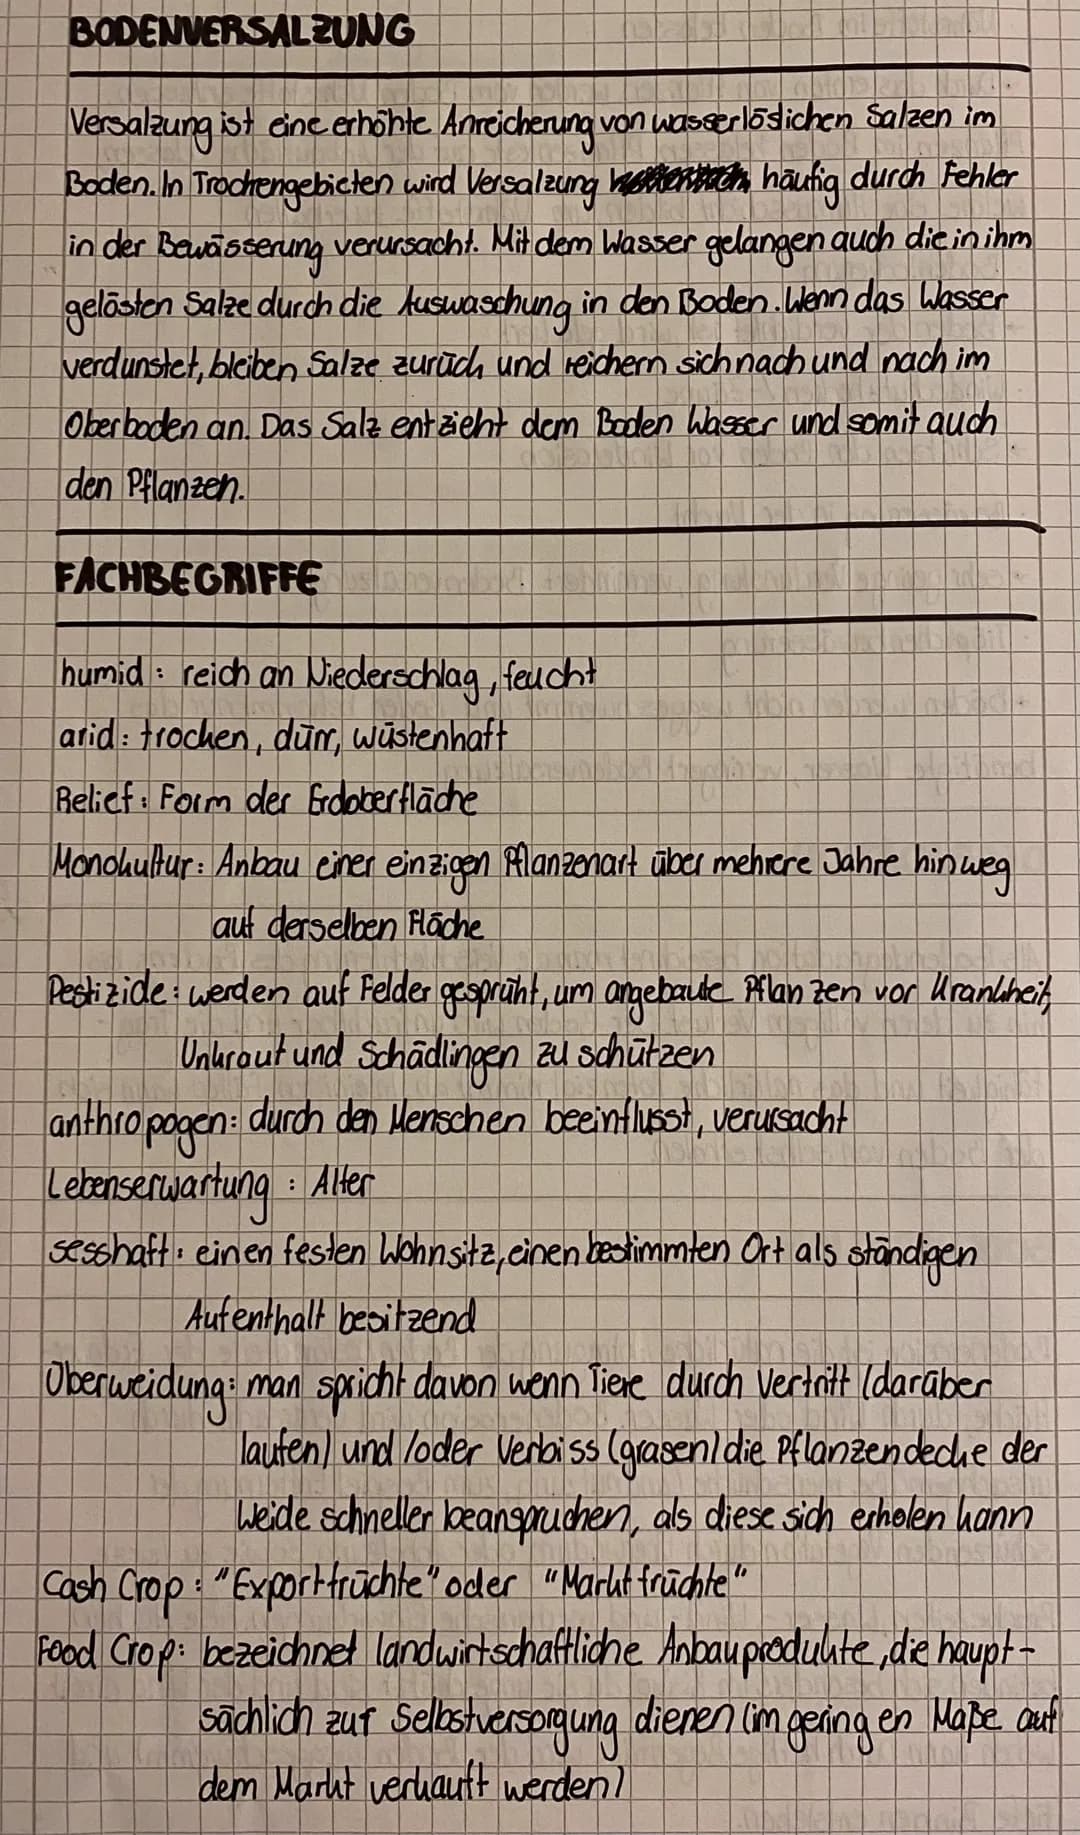 BODENVERSALZUNG
Versalzung ist eine erhöhte Anreicherung von wasserlöslichen Salzen im
Boden. In Trockengebieten wird Versalzung häufig durch Fehler
in der Bewässerung verursacht. Mit dem Wasser gelangen auch die in ihm
gelösten Salze durch die Auswaschung in den Boden. Wenn das Wasser
verdunstet, bleiben Salze zurück und reichern sich nach und nach im
Oberboden an. Das Salz entzieht dem Boden Wasser und somit auch
den Pflanzen.
FACHBEGRIFFE
humid: reich an Niederschlag, feucht
arid: trocken, dürr, wüstenhaft
Relief: Form der Erdoberfläche
Monokultur: Anbau einer einzigen Pflanzenart über mehrere Jahre hinweg
auf derselben Fläche
Pestizide: werden auf Felder gesprüht, um angebaute Pflanzen vor Krankheit,
Unkraut und Schädlingen zu schützen
anthropogen: durch den Menschen beeinflusst, verursacht
Lebenserwartung: Alter
sesshaft: einen festen Wohnsitz, einen bestimmten Ort als ständigen
Aufenthalt besitzend
Überweidung: man spricht davon wenn Tiere durch Vertritt (darüber
laufen) und/oder Verbiss (grasen) die Pflanzendecke der
Weide schneller beanspruchen, als diese sich erholen kann
Cash Crop: "Exportfrüchte" oder "Marktfrüchte"
Food Crop: bezeichnet landwirtschaftliche Anbauprodukte, die haupt-
sächlich zur Selbstversorgung dienen (im geringen Maße auf
dem Markt verkauft werden)